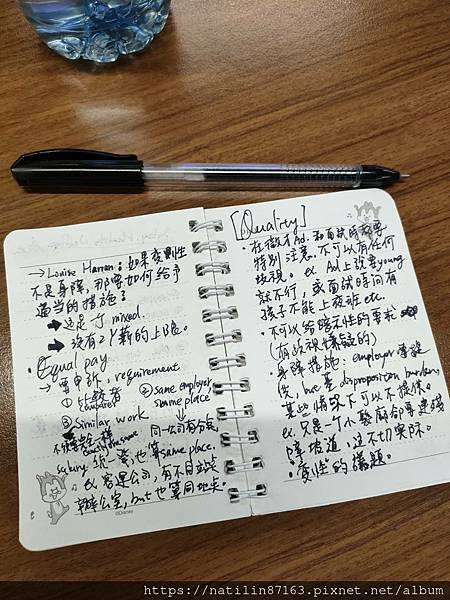 → Louise Harren: 如果變性
不是身障，那要如何給予
適當的措施？
➡ 這是 mixed.
➡ 沒有2Y薪的上限。
• Equal pay
→ 要申訴, requirement
① 比較者 ② same employer
compare same place
③ Similar work ⇓
同一公司有分裝
salary 統一發, 也算 same place.
ex 客運公司, 有不同站點
辦公室, but 也算同地点.
©Disney
[Quality]
• 在徵才Ad. 和面試時都要
特別注意, 不可以有任何
歧視。 ex Ad上說要young
就不行, 或面試時問有
孩子不能上夜班 etc.
• 不可以給暗示性的要求
(有歧視嫌疑的)
• 身障措施: employer 要提
供, but 若 disproportion burden,
某些情況下可以不提供。
ex. 只是一个小醫廟卻要建殘
障坡道, 這不切實際。
• 變性的議題。
https://natilin87163.pixnet.net/album